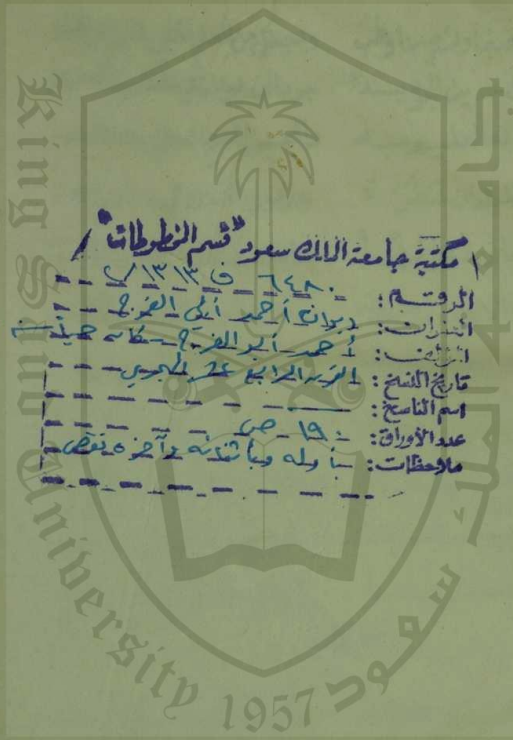 مكتبة جامعة الملك سعود "قسم المخطوطات"
الرقم: ٦٤٨٠ ف ١٣١٣/
العنوان: ديوان أحمد أبي الفرج
المؤلف: أحمد أبو الفرج - كان حياً سنة
تاريخ النسخ: القرن الرابع عشر الهجري
اسم الناسخ:
عدد الأوراق: ١٩ ص
ملاحظات: بأوله وبأثنائه وآخره نقص
King Saud University
1957
جامعة الملك سعود